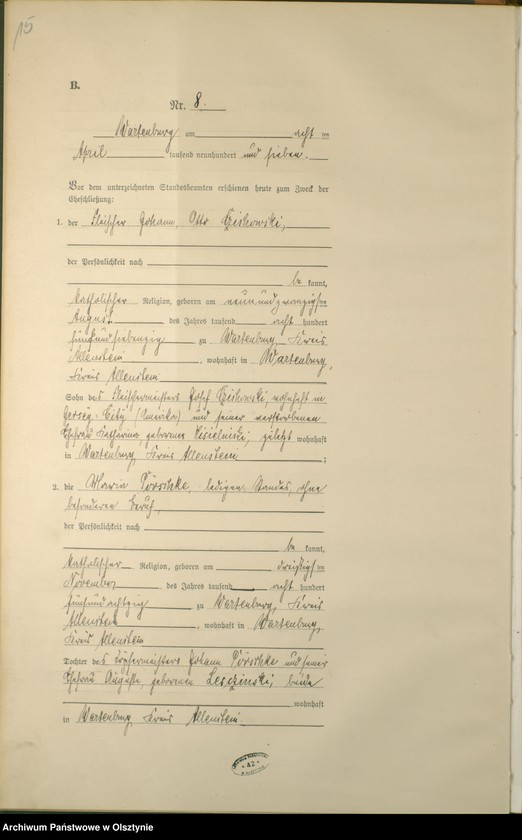 15
B.
Nr. 8.
Wartenburg am acht ten
April tausend neunhundert und sieben.
Vor dem unterzeichneten Standesbeamten erschienen heute zum Zweck der
Eheschließung:
1. der Fleischer Johann, Otto
der Persönlichkeit nach
be kannt,
katholischer Religion, geboren am neunundzwanzigsten
August des Jahres tausend acht hundert
fünfundsiebenzig zu Wartenburg, Kreis
Allenstein, wohnhaft in Wartenburg,
Kreis Allenstein
Sohn des Fleischermeisters Josef wohnhaft in
Jersey-City (Amerika) und seiner verstorbenen
Ehefrau Katharina geborene zuletzt wohnhaft
in Wartenburg, Kreis Allenstein;
2. die Maria ledigen Standes, ohne
besonderen Beruf,
der Persönlichkeit nach
be kannt,
katholischer Religion, geboren am dreißigsten
November des Jahres tausend acht hundert
fünfundachtzig zu Wartenburg, Kreis
Allenstein, wohnhaft in Wartenburg,
Kreis Allenstein
Tochter des Töpfermeisters Johann und seiner
Ehefrau Auguste, geborenen Lesczinski, beide
wohnhaft
in Wartenburg, Kreis Allenstein.
42
Archiwum Państwowe w Olsztynie